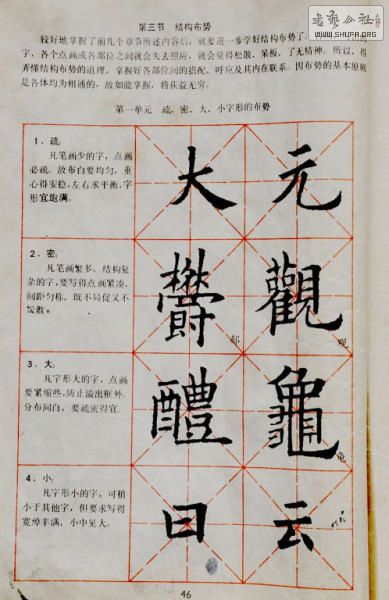 書艺公社
WWW.SHUFR.ORG
第三节 结构布势
较好地掌握了前几个章节所述内容后，就要进一步学好结构布势了。
字，各个点画或各部位之间就会失去照应，就会觉得松散、呆板、了无精神。所以，得
弄懂结构布势的道理，掌握好各部位间的搭配、呼应及其内在联系。因布势的基本原则
是各体均为相通的，故如能掌握，将获益匪浅。
第一单元 疏、密、大、小字形的布势
1．疏：
凡笔画少的字，点画
必疏。故布白要均匀，重
心得安稳，左右求平衡，字
形宜饱满。
大 元
2．密：
凡笔画繁多、结构复
杂的字，要写得点画紧凑、
间距匀称，既不局促又不
松散。
欝 觀
郁 观
3．大：
凡字形大的字，点画
要紧缩些，防止溢出框外。
分布间白，要疏密得宜。
醴 龜
龟
4．小：
凡字形小的字，可稍
小于其他字，但要求写得
宽绰丰满、小中见大。
曰 云
46